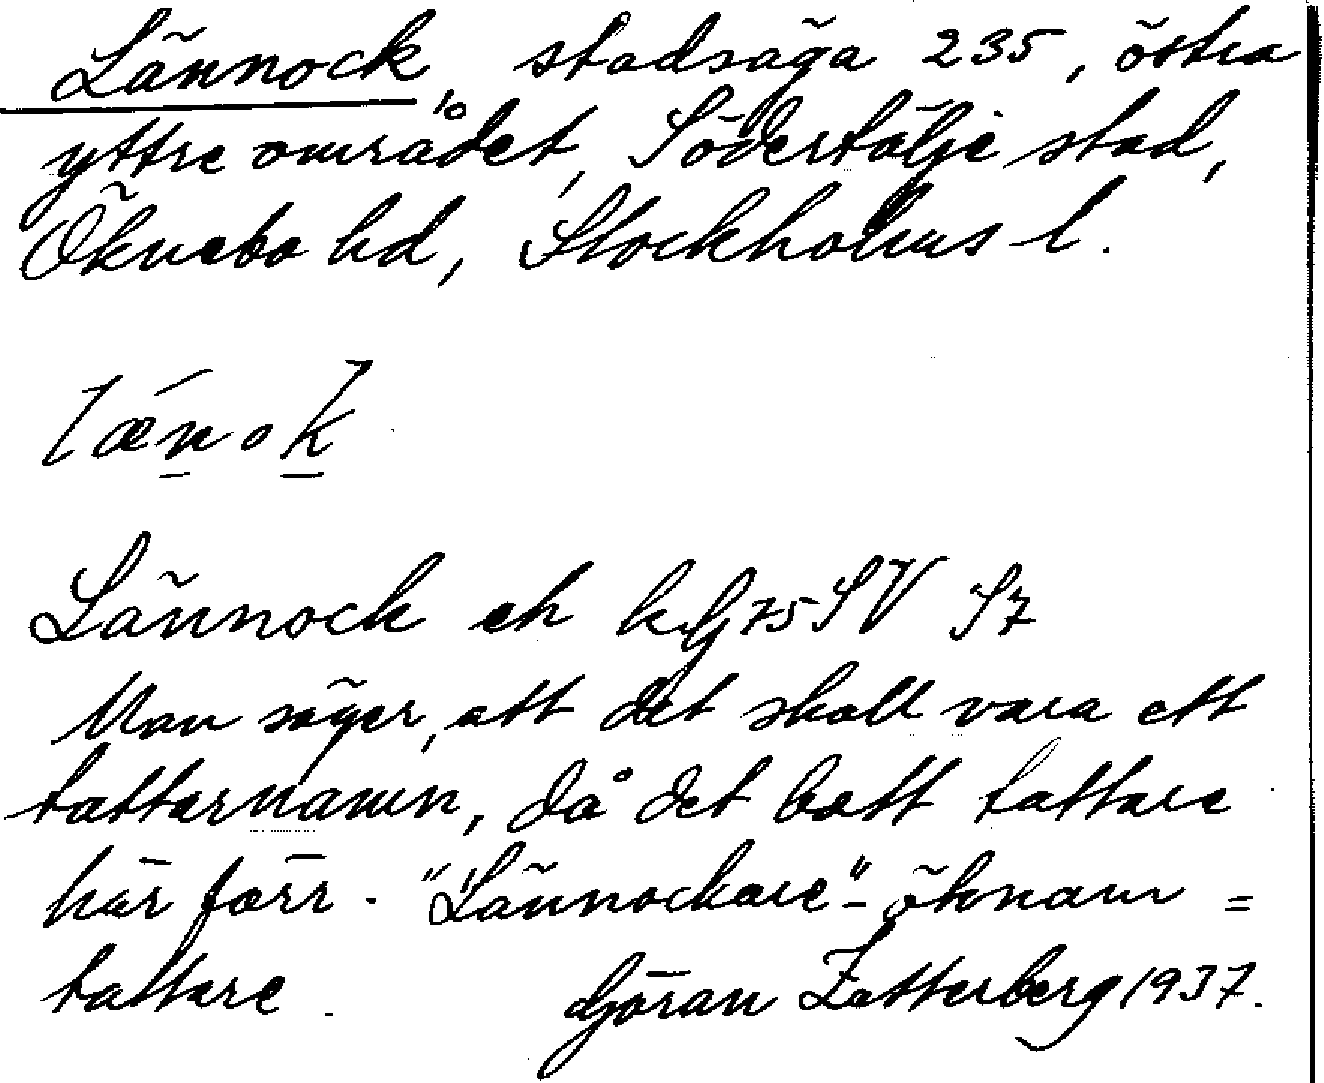 Lännock, stadsäga 235, östra
yttre området, Södertälje stad,
Öknebo hd, Stockholms l.
lǽnok
Lännock ek kG75SV S7
Man säger, att det skall vara ett
tattarnamn, då det bott tattare
här förr. "Lännockare"- öknamn =
tattare. Göran Zetterberg 1937.